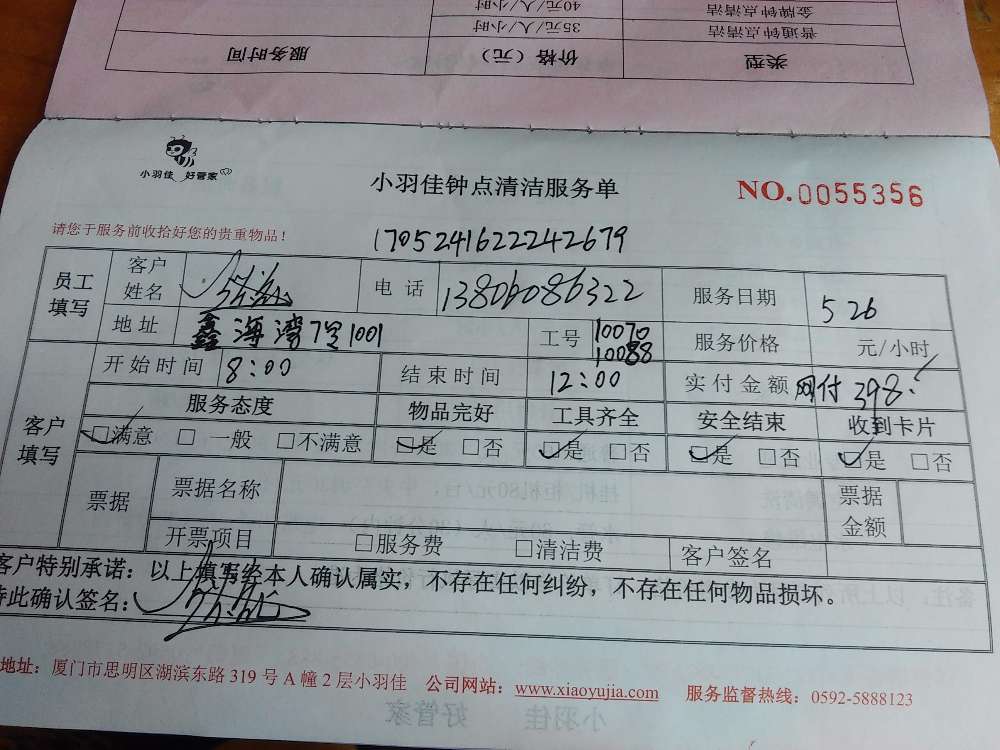 金牌钟点清洁 40元/人/小时
普通钟点清洁 35元/人/小时
类型 价格（元） 服务时间
小羽佳 好管家
小羽佳钟点清洁服务单
NO.0055356
请您于服务前收拾好您的贵重物品！
1705241622242679
员工填写 客户姓名 电话 13806086322 服务日期 5 26
地址 鑫海湾7号1001 工号 10070 10088 服务价格 元/小时
开始时间 8:00 结束时间 12:00 实付金额 网付398
客户填写 服务态度 物品完好 工具齐全 安全结束 收到卡片
☑满意 □一般 □不满意 ☑是 □否 ☑是 □否 ☑是 □否 ☑是 □否
票据 票据名称 票据金额
开票项目 □服务费 □清洁费 客户签名
客户特别承诺：以上填写经本人确认属实，不存在任何纠纷，不存在任何物品损坏。
特此确认签名：
地址：厦门市思明区湖滨东路319号A幢2层小羽佳 公司网站：www.xiaoyujia.com 服务监督热线：0592-5888123